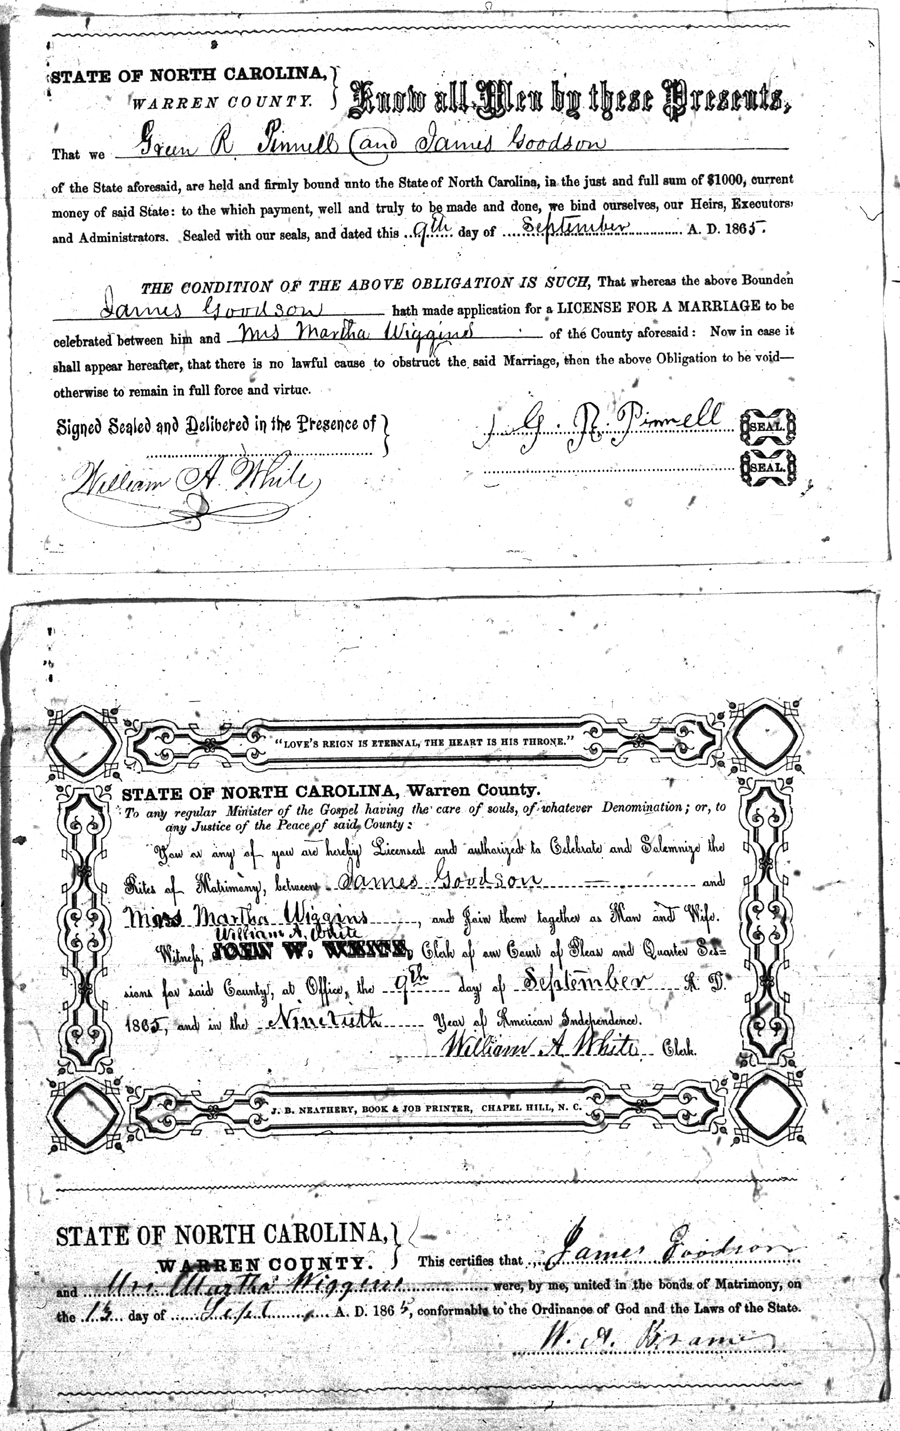 STATE OF NORTH CAROLINA,
WARREN COUNTY.
Know all Men by these Presents,
That we Green R. Pinnell (and James Goodson
of the State aforesaid, are held and firmly bound unto the State of North Carolina, in the just and full sum of $1000, current
money of said State: to the which payment, well and truly to be made and done, we bind ourselves, our Heirs, Executors
and Administrators. Sealed with our seals, and dated this 9th day of September A. D. 1865.
THE CONDITION OF THE ABOVE OBLIGATION IS SUCH, That whereas the above Bounden
James Goodson hath made application for a LICENSE FOR A MARRIAGE to be
celebrated between him and Mrs Martha Wiggins of the County aforesaid: Now in case it
shall appear hereafter, that there is no lawful cause to obstruct the said Marriage, then the above Obligation to be void—
otherwise to remain in full force and virtue.
Signed Sealed and Delibered in the Presence of
G. R. Pinnell SEAL.
William A. White
SEAL.
"LOVE'S REIGN IS ETERNAL, THE HEART IS HIS THRONE."
STATE OF NORTH CAROLINA, Warren County.
To any regular Minister of the Gospel having the care of souls, of whatever Denomination; or, to
any Justice of the Peace of said County:
You or any of you are hereby Licensed and authorized to Celebrate and Solemnize the
Rites of Matrimony, between James Goodson — and
Martha Wiggins, and Join them together as Man and Wife.
William A. White
Witness, JOHN W. WHITE, Clerk of our Court of Pleas and Quarter Ses=
sions for said County, at Office, the 9th day of September A. D.
1865, and in the Ninetieth Year of American Independence.
William A White Clerk.
J. B. NEATHERY, BOOK & JOB PRINTER, CHAPEL HILL, N. C.
STATE OF NORTH CAROLINA,
WARREN COUNTY.
This certifies that James Goodson
and Mrs. Martha Wiggins were, by me, united in the bonds of Matrimony, on
the day of Sept A. D. 1865, conformable to the Ordinance of God and the Laws of the State.
W. A.